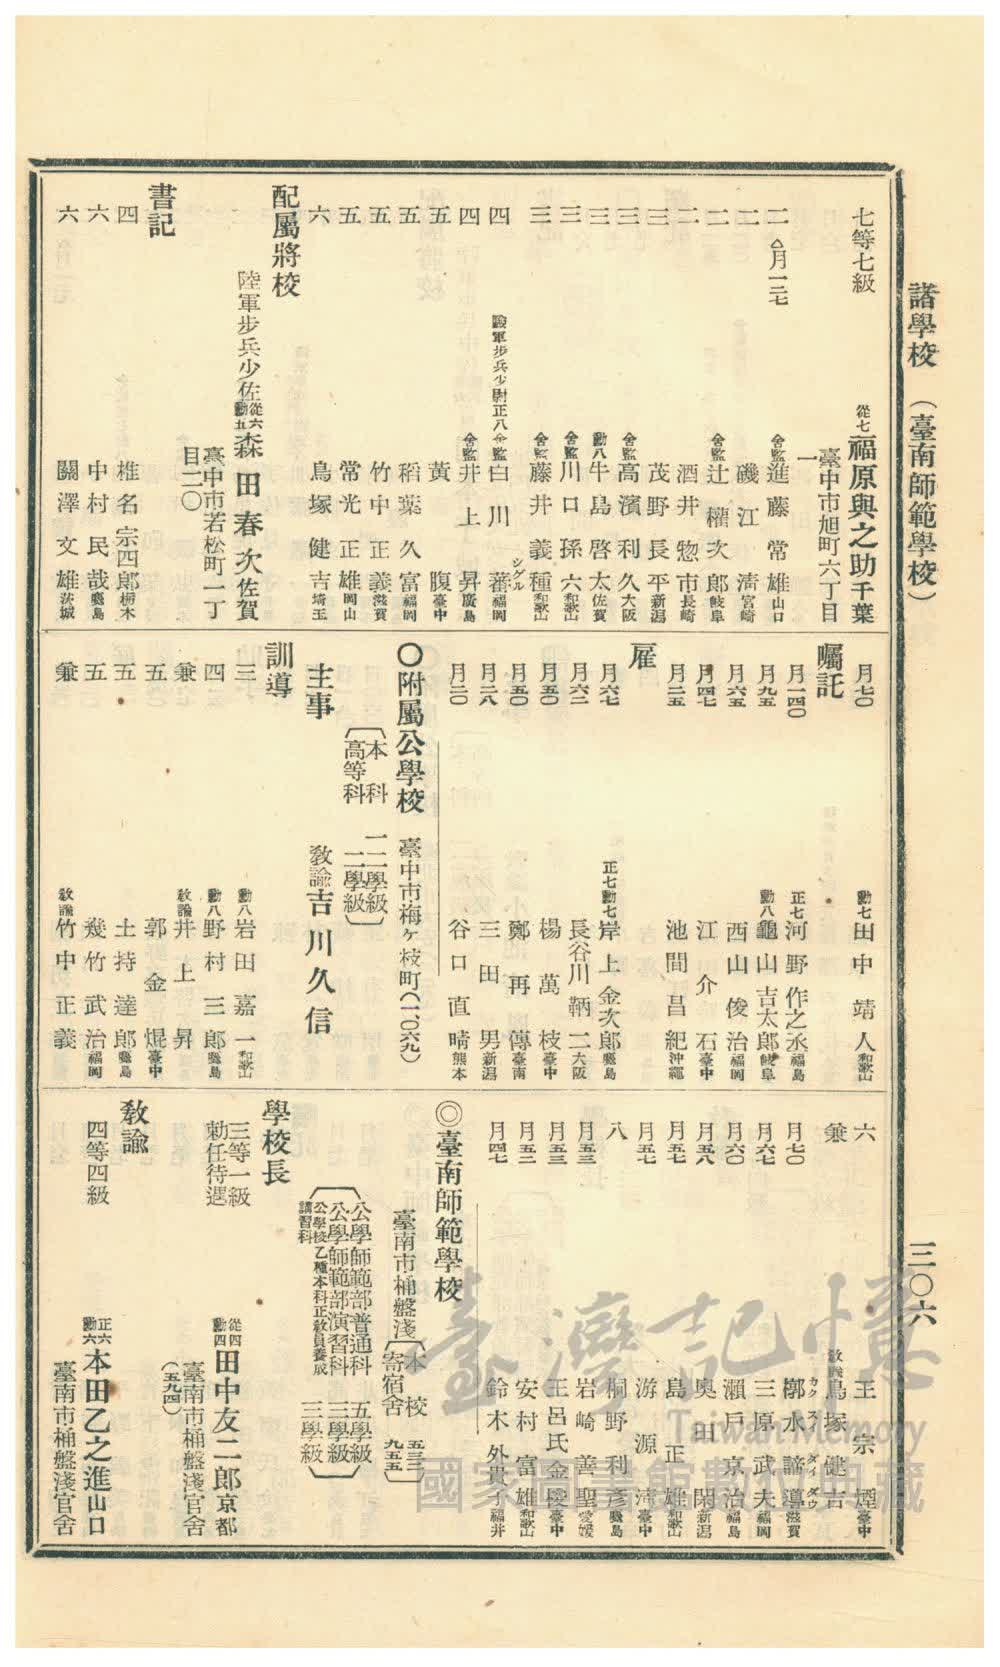 諸學校 (臺南師範學校)
三〇六
七等七級 從七 福原與之助 千葉
臺中市旭町六丁目一
二 △月一二七 舍監 進藤常雄 山口
二 磯江淸 宮崎
二 舍監 辻權次郞 岐阜
二 酒井惣市 長崎
三 茂野長平 新潟
三 舍監 高濱利久 大阪
三 勳八 牛島啓太 佐賀
三 舍監 川口孫六 和歌山
三 舍監 藤井義種 和歌山
四 陸軍步兵少尉正八 舍監 白川蕃 シゲル 福岡
四 舍監 井上昇 廣島
五 黃腹 臺中
五 稻葉久富 福岡
五 竹中正義 滋賀
五 常光正雄 岡山
六 鳥塚健吉 埼玉
配屬將校
陸軍步兵少佐 從六 勳五 森田春次 佐賀
臺中市若松町一丁目二〇
書記
四 椎名宗四郞 栃木
六 中村民哉 廣島
六 關澤文雄 茨城
月七〇 勳七 田中靖人 和歌山
囑託
月一四〇 正七 河野作之丞 福島
月九五 勳八 龜山吉太郞 岐阜
月六五 西山俊治 福岡
月四七 江介石 臺中
月二五 池間昌紀 沖繩
雇
月六七 正七勳七 岸上金次郞 廣島
月六二 長谷川鞆二 大阪
月五〇 楊萬枝 臺中
月五〇 鄭再傳 臺南
月二八 三田男 新潟
月二〇 谷口直晴 熊本
〇附屬公學校 臺中市梅ヶ枝町(一〇六九)
本科 一二學級
高等科 二學級
主事 敎諭 吉川久信
訓導
三 勳八 岩田嘉一 和歌山
四 勳八 野村三郞 廣島
兼 敎諭 井上昇
五 郭金焜 臺中
五 土持達郞
五 幾竹武治 福岡
兼 敎諭 竹中正義
六 王宗煙 臺中
兼 敎諭 鳥塚健吉
月七〇 廓水諦導 カクスイダイダウ 滋賀
月六七 三原武夫 福岡
月六〇 瀨戶京治 福島
月五八 奧田閑 新潟
月五七 島正雄 和歌山
月五七 游源淸 臺中
八 桐野利彥
月五三 岩崎善聖 愛媛
月五三 王呂氏金 臺中
月五二 安村富雄 和歌山
月四七 鈴木外貴子 福井
◎臺南師範學校
臺南市桶盤淺 本校 五三二
寄宿舍 九五五
公學師範部普通科 五學級
公學師範部演習科 三學級
公學校乙種本科正敎員養成講習科 三學級
學校長
三等一級
勅任待遇 從四 勳四 田中友二郞 京都
臺南市桶盤淺官舍
(五九四)
敎諭
四等四級 正六 勳六 本田乙之進 山口
臺南市桶盤淺官舍
臺灣記憶
Taiwan Memory
國家圖書館數位典藏